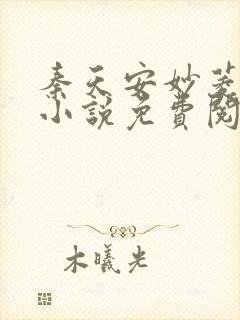 秦天安妙菱
小說免費閱
木曦光